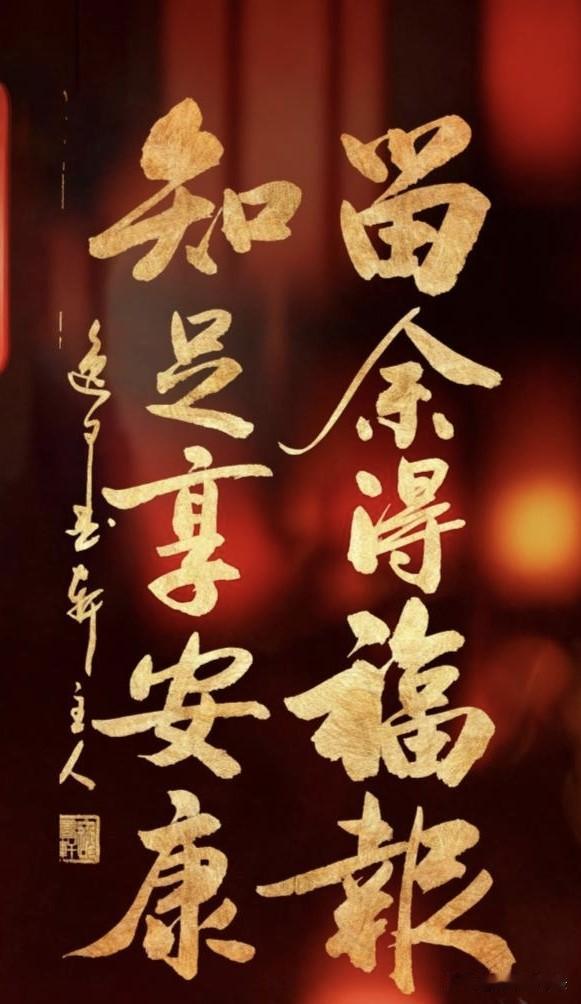 留余得福報
知足享安康
逸夕書軒主人